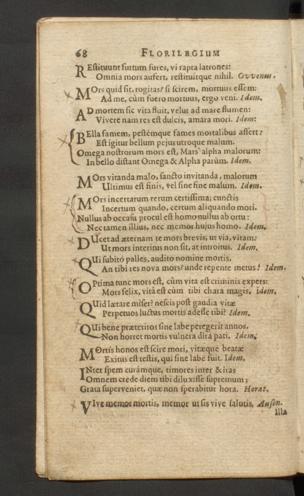 68 FLORILEGIUM
REstituunt furtum fures, vi rapta latrones:
Omnia mors aufert, restituitque nihil. Owenus.
MOrs quid sit, rogitas? si scirem, mortuus essem:
Ad me, cùm fuero mortuus, ergo veni. Idem.
AD mortem sic vita fluit, velut ad mare flumen:
Vivere nam res est dulcis, amara mori. Idem.
BElla famem, pestémque fames mortalibus affert:
Est igitur bellum pejus utroque malum.
Omega nostrorum mors est, Mars alpha malorum:
In bello distant Omega & Alpha parùm. Idem.
MOrs vitanda malo, sancto invitanda, malorum
Ultimus est finis, vel sine fine malum. Idem.
MOrs incertarum rerum certissima; cunctis
Incertum quando, certum aliquando mori.
Nullus ab occasu procul est homo nullus ab ortu:
Nec tamen illius, nec memor hujus homo. Idem.
DUcet ad æternam te mors brevis, ut via, vitam:
Ut mors interitus non sit, at introitus. Idem.
QUi subitò palles, audito nomine mortis,
An tibi res nova mors? unde repente metus? Idem.
OPtima tunc mors est, cùm vita est criminis expers:
Mors felix, vita est cùm tibi chara magis. Idem.
QUid lætare miser? nescis post gaudia vitæ
Perpetuos luctus mortis adesse tibi? Idem.
QUi bene præteritos sine labe peregerit annos,
Non horret mortis vulnera dira pati. Idem.
MOrtis honos est scire mori, vitæque beatæ
Exitus est testis, qui sine labe fuit. Idem.
INter spem curámque, timores inter & iras
Omnem crede diem tibi diluxisse supremum;
Grata superveniet, quæ non sperabitur hora. Horat.
VIve memor mortis, memor ut sis vive salutis. Auson.
Illa